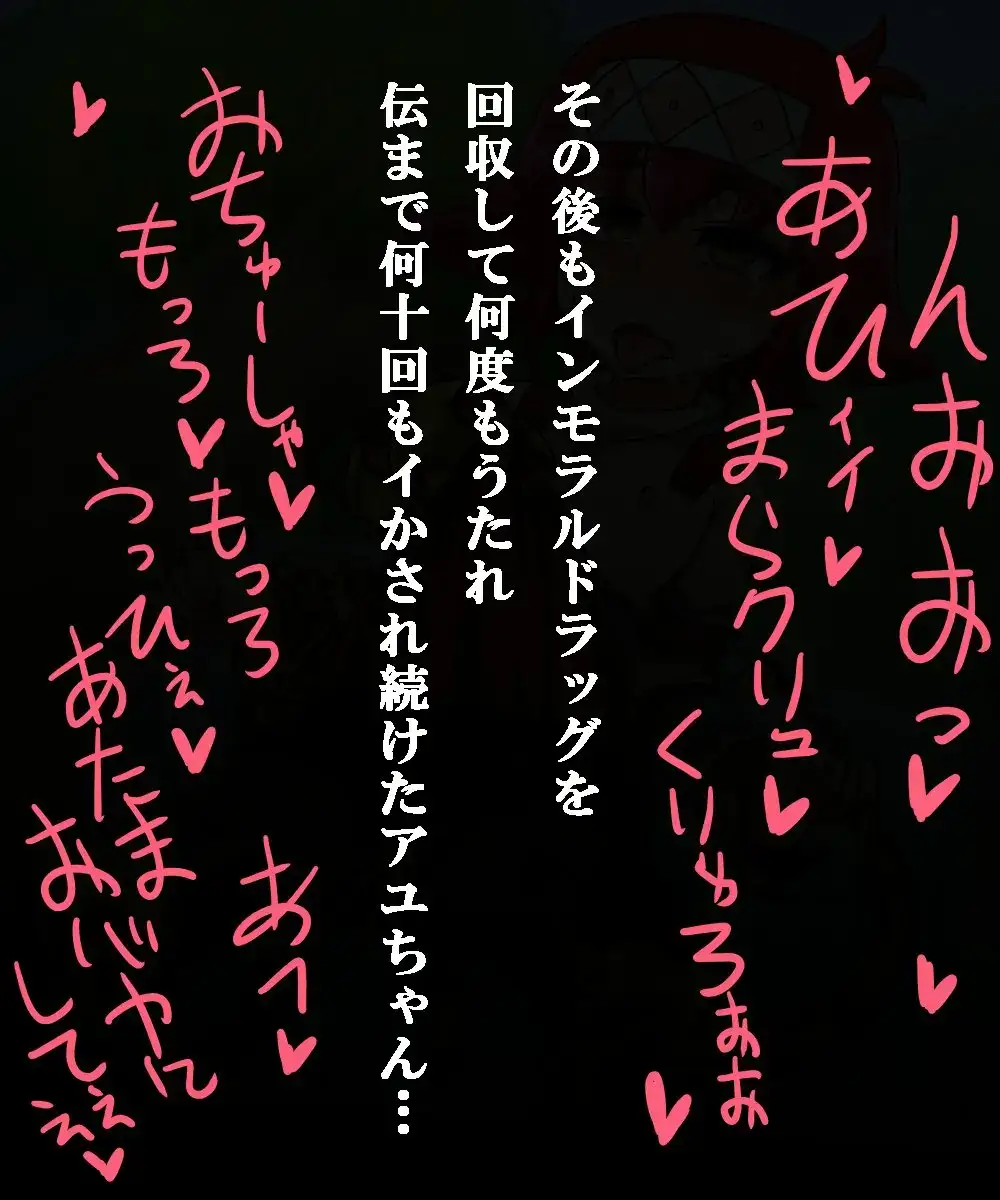 んおおっ♥
♥
あひィイ♥
まらクリュ♥
くりゅろぉお
♥
その後もインモラルドラッグを
回収して何度もうたれ
伝まで何十回もイかされ続けたアユちゃん…
おちゅーしゃ♥
もっろ♥もっろ
♥
あへ♥
うっひぇ♥
あたまおバカに
してぇぇ♥